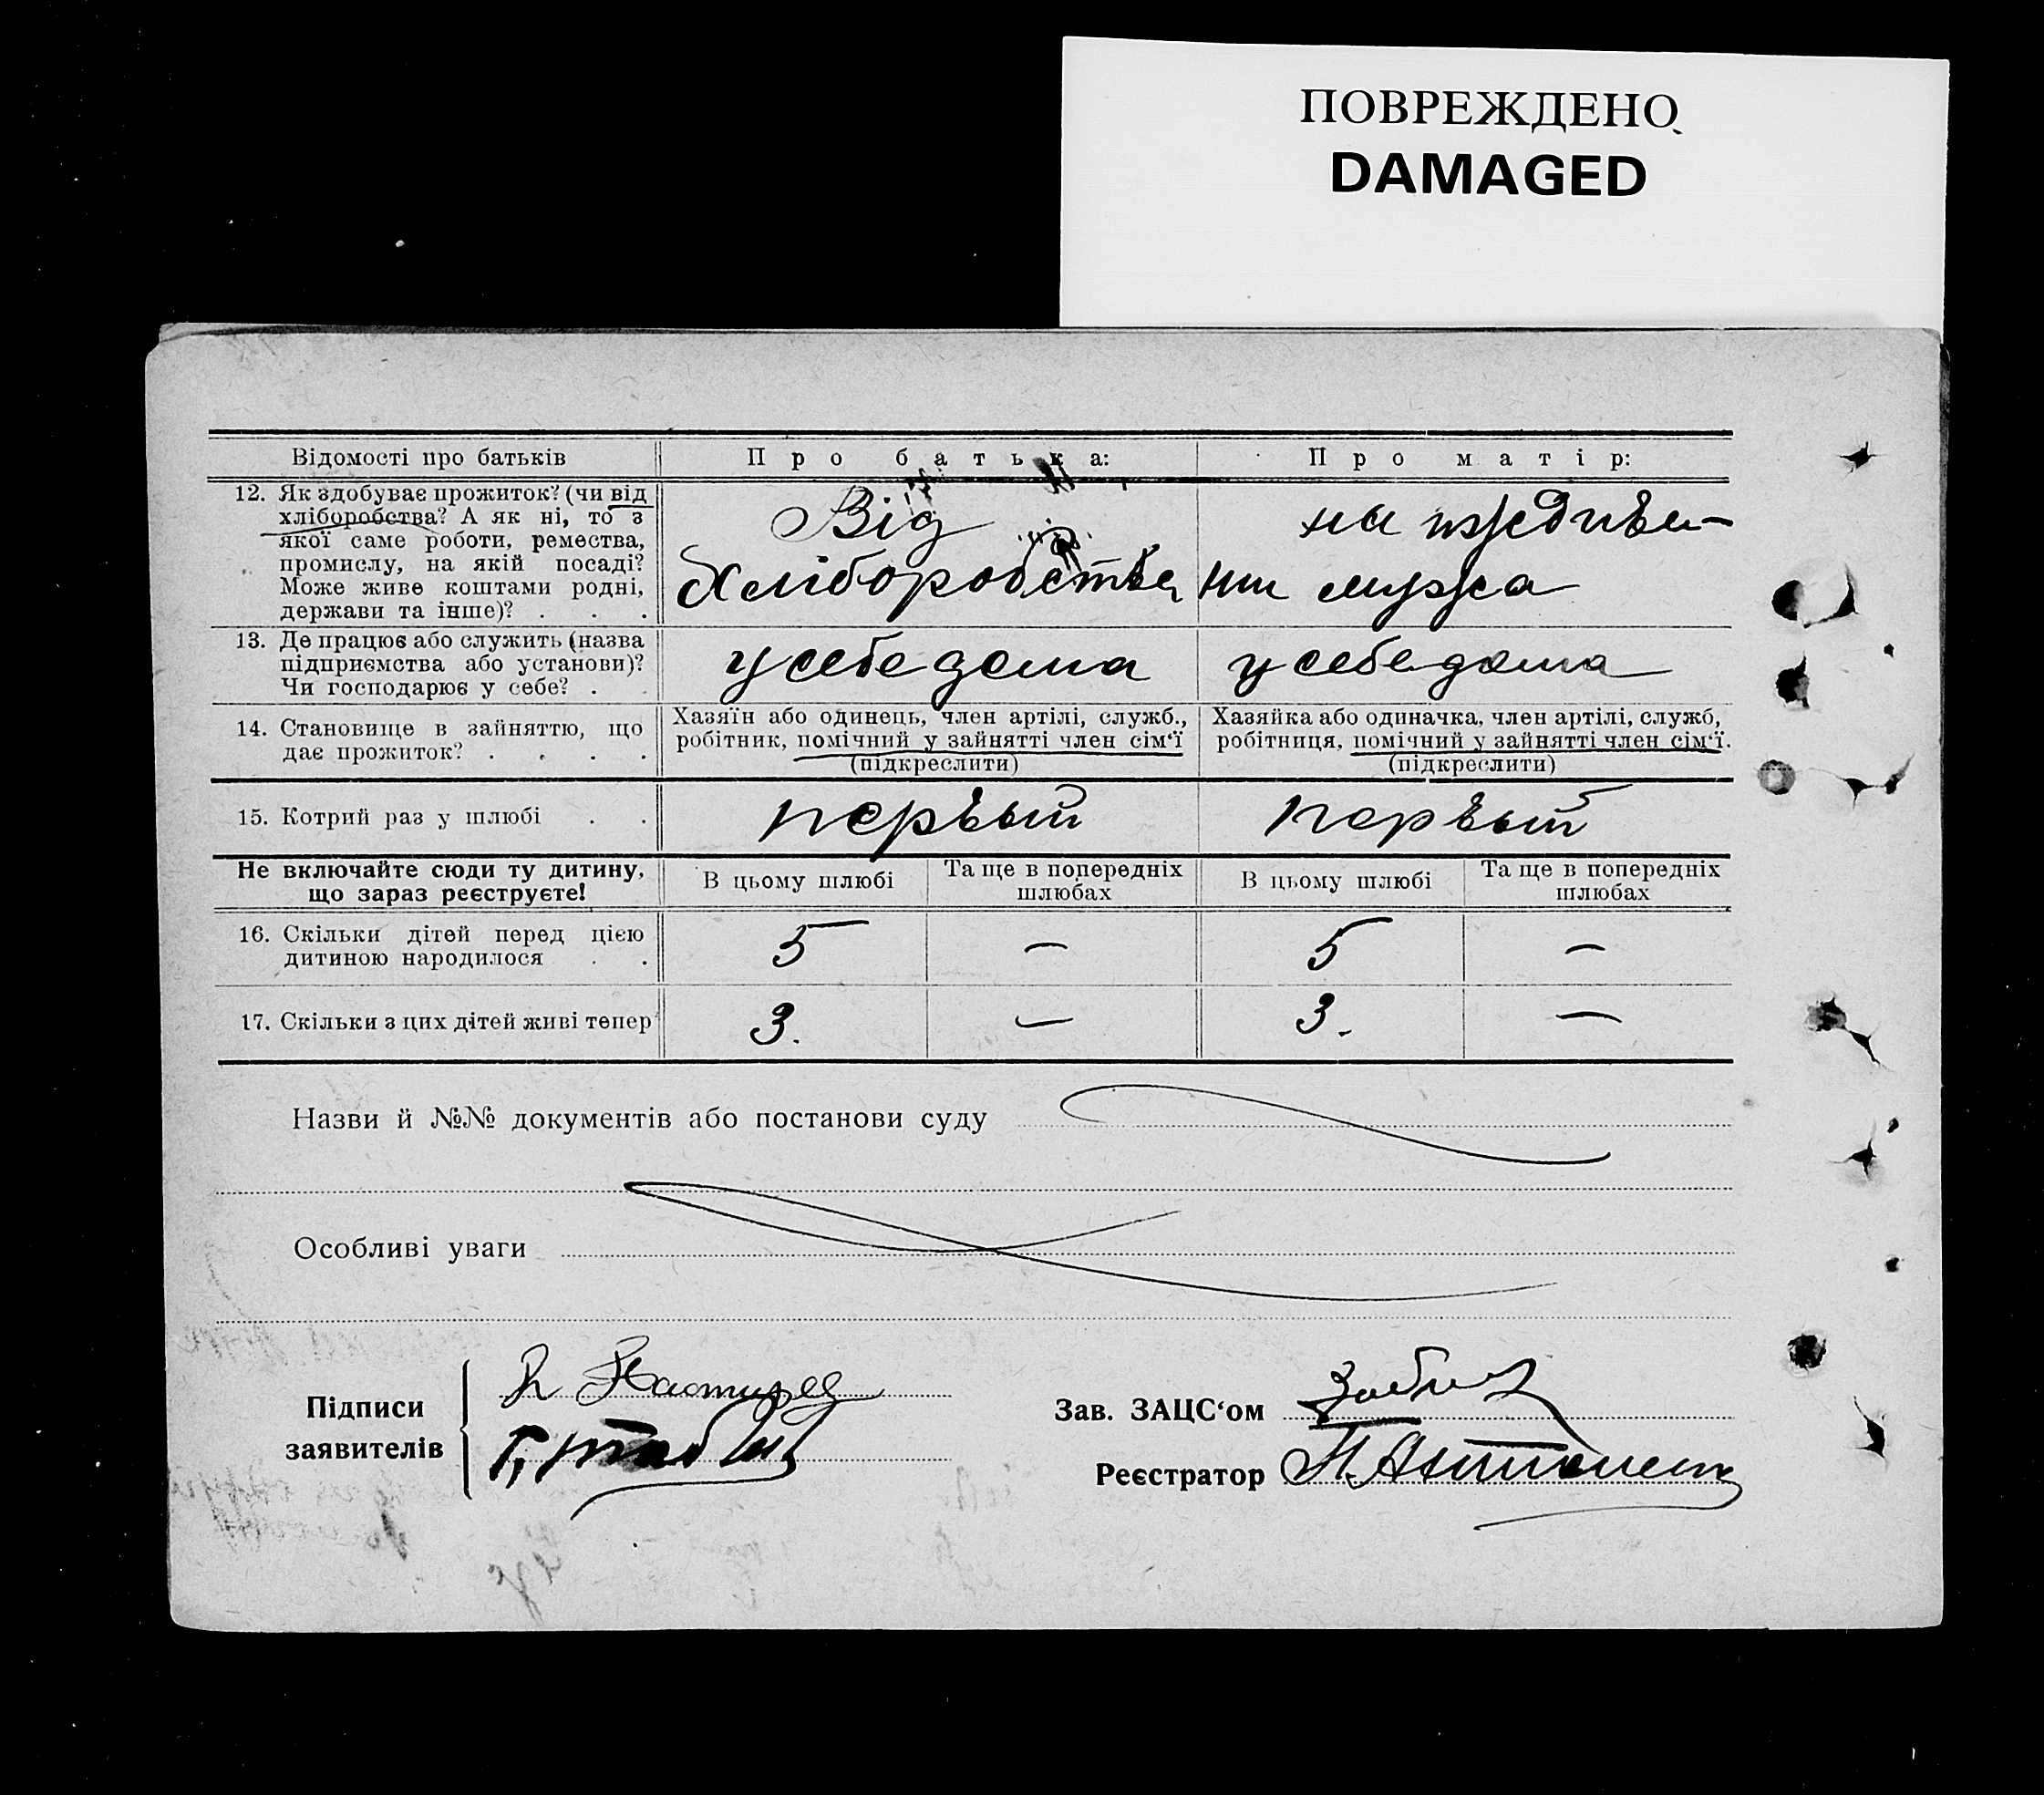 ПОВРЕЖДЕНО
DAMAGED
Відомості про батьків
Про батька:
Про матір:
12. Як здобуває прожиток? (чи від
хліборобства? А як ні, то з
якої саме роботи, ремества,
промислу, на якій посаді?
Може живе коштами родні,
держави та інше)? . . .
Від
хліборобства
на иждиве-
нии мужа
13. Де працює або служить (назва
підприємства або установи)?
Чи господарює у себе? . .
у себе дома
у себе дома
14. Становище в зайняттю, що
дає прожиток? . . . .
Хазяїн або одинець, член артілі, служб.,
робітник, помічний у зайнятті член сім‘ї
(підкреслити)
Хазяйка або одиначка, член артілі, служб,
робітниця, помічний у зайнятті член сім‘ї.
(підкреслити)
15. Котрий раз у шлюбі . .
первый
первый
Не включайте сюди ту дитину,
що зараз реєструєте!
В цьому шлюбі
Та ще в попередніх
шлюбах
В цьому шлюбі
Та ще в попередніх
шлюбах
16. Скільки дітей перед цією
дитиною народилося . .
5
—
5
—
17. Скільки з цих дітей живі тепер
3.
—
3.
—
Назви й №№ документів або постанови суду
Особливі уваги
Підписи
заявителів
Зав. ЗАЦС‘ом
Реєстратор